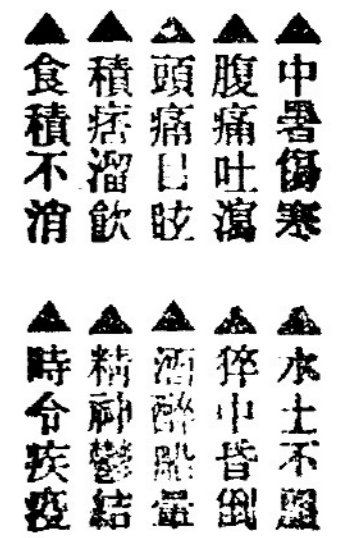 ▲中暑傷寒
▲腹痛吐瀉
▲頭痛目眩
▲積痞溜飲
▲食積不消
▲水土不服
▲猝中昏倒
▲酒醉船暈
▲精神鬱結
▲時令疾疫